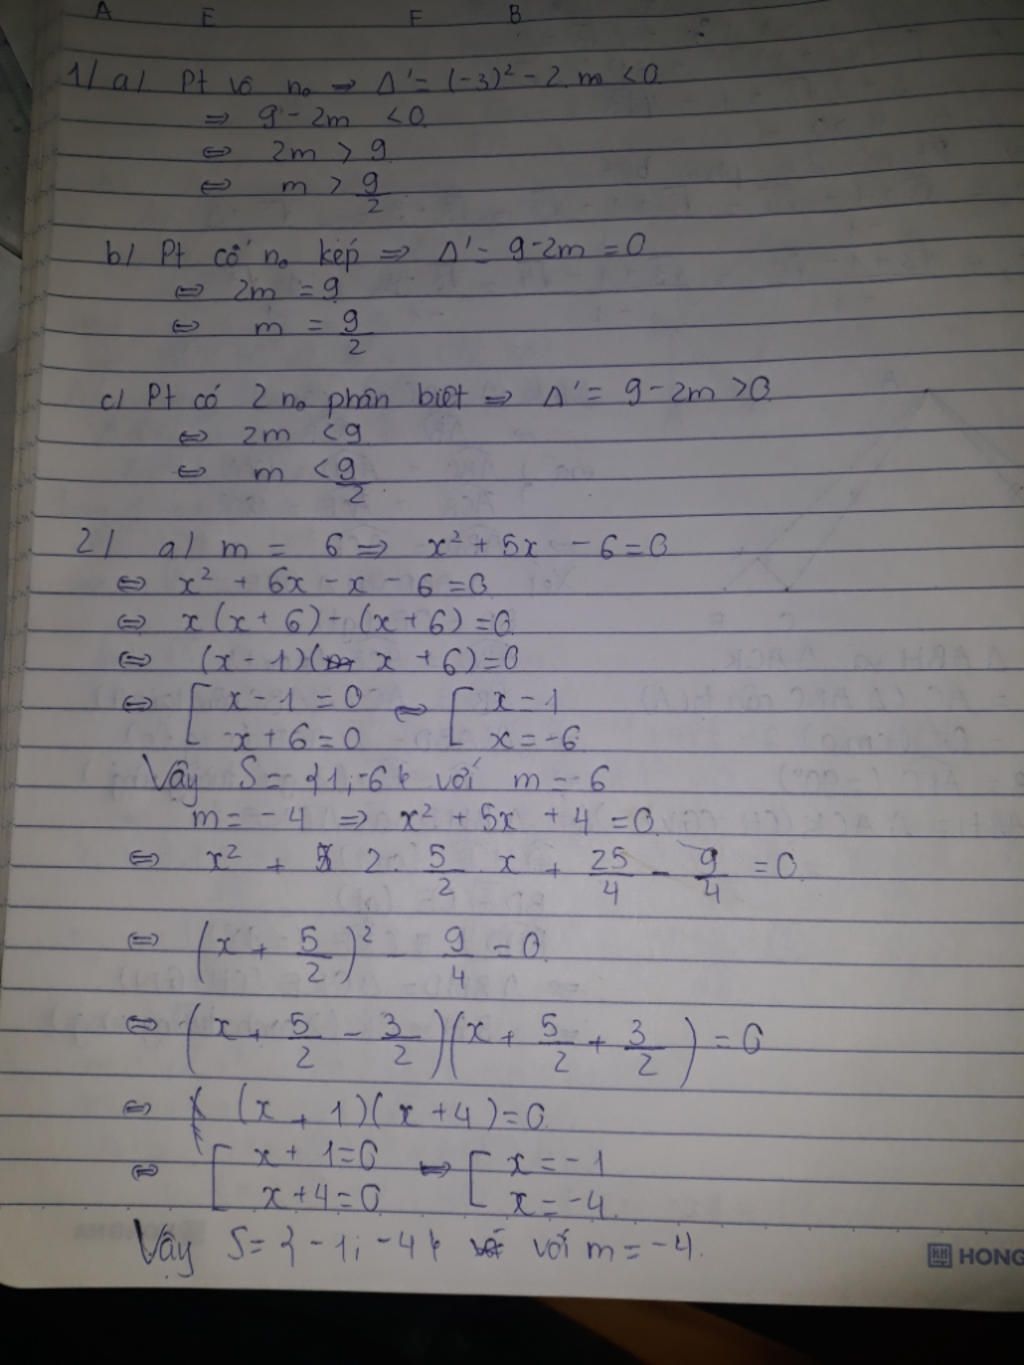 A E F B
1/ a/ Pt vô n₀ ⇒ Δ' = (-3)² - 2.m < 0
⇒ 9 - 2m < 0
⇔ 2m > 9
⇔ m > 9/2
b/ Pt có n₀ kép ⇒ Δ' = 9 - 2m = 0
⇔ 2m = 9
⇔ m = 9/2
c/ Pt có 2 n₀ phân biệt ⇒ Δ' = 9 - 2m > 0
⇔ 2m < 9
⇔ m < 9/2
2/ a/ m = 6 ⇒ x² + 5x - 6 = 0
⇔ x² + 6x - x - 6 = 0
⇔ x(x + 6) - (x + 6) = 0
⇔ (x - 1)(x + 6) = 0
⇔ [ x - 1 = 0 ⇔ [ x = 1
x + 6 = 0 x = -6
Vậy S = {1; -6} với m = -6
m = -4 ⇒ x² + 5x + 4 = 0
⇔ x² + 2. 5/2 . x + 25/4 - 9/4 = 0
⇔ (x + 5/2)² - 9/4 = 0
⇔ (x + 5/2 - 3/2)(x + 5/2 + 3/2) = 0
⇔ (x + 1)(x + 4) = 0
⇔ [ x + 1 = 0 ⇔ [ x = -1
x + 4 = 0 x = -4
Vậy S = {-1; -4} với m = -4.
HONG